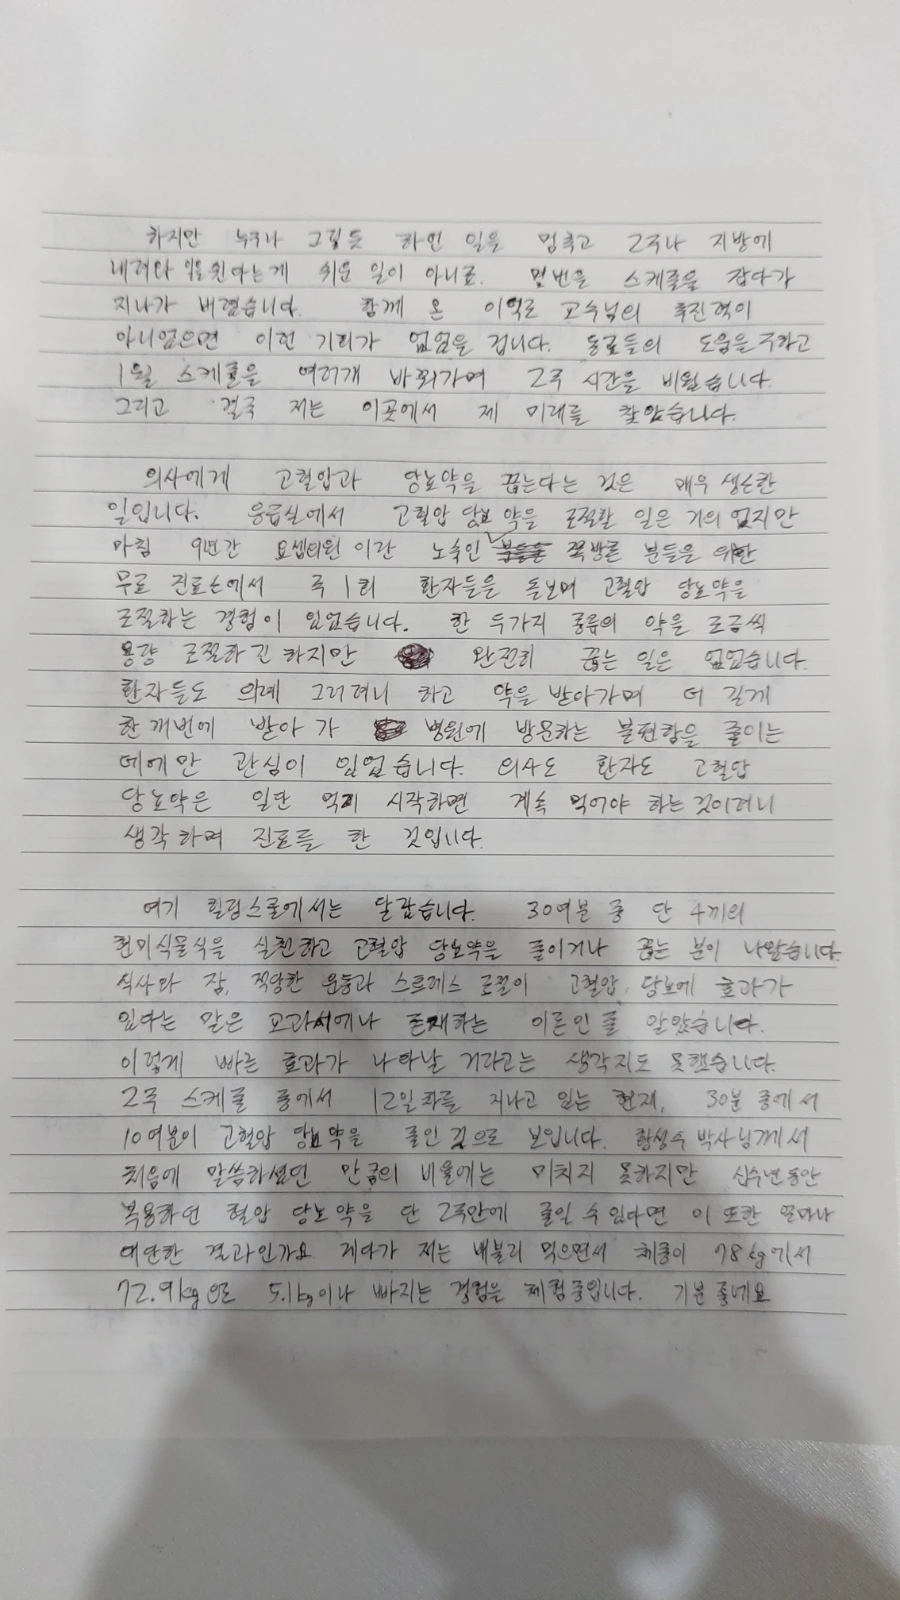 하지만 누구나 그렇듯 하던 일을 멈추고 2주나 지방에
내려와 일을 쉰다는게 쉬운 일이 아니죠. 몇번을 스케줄을 잡다가
지나가 버렸습니다. 함께 온 이익로 교수님의 추진력이
아니었으면 이런 기회가 없었을 겁니다. 동료들의 도움을 구하고
1월 스케줄을 여러개 바꿔가며 2주 시간을 비웠습니다.
그리고 결국 저는 이곳에서 제 미래를 찾았습니다.
의사에게 고혈압과 당뇨약을 끊는다는 것은 매우 생소한
일입니다. 응급실에서 고혈압 당뇨 약을 조절할 일은 거의 없지만
마침 9년간 요셉의원 이란 노숙인 쪽방촌 분들을 위한
무료 진료소에서 주 1회 환자들을 돌보며 고혈압 당뇨약을
조절하는 경험이 있었습니다. 한 두가지 종류의 약을 조금씩
용량 조절하긴 하지만 완전히 끊는 일은 없었습니다.
환자들도 의례 그러려니 하고 약을 받아가며 더 길게
한꺼번에 받아 가 병원에 방문하는 불편함을 줄이는
데에만 관심이 있었습니다. 의사도 환자도 고혈압
당뇨약은 일단 먹기 시작하면 계속 먹어야 하는 것이려니
생각하며 진료를 한 것입니다.
여기 힐링스쿨에서는 달랐습니다. 30여분 중 단 4끼의
현미식물식을 실천하고 고혈압 당뇨약을 줄이거나 끊는 분이 나왔습니다.
식사와 잠, 적당한 운동과 스트레스 조절이 고혈압, 당뇨에 효과가
있다는 말은 교과서에나 존재하는 이론인 줄 알았습니다.
이렇게 빠른 효과가 나타날 거라고는 생각지도 못했습니다.
2주 스케줄 중에서 12일차를 지나고 있는 현재, 30분 중에서
10여분이 고혈압 당뇨약을 줄인 것으로 보입니다. 황성수 박사님께서
처음에 말씀하셨던 만큼의 비율에는 미치지 못하지만 십수년동안
복용하던 혈압 당뇨약을 단 2주안에 줄일 수 있다면 이 또한 얼마나
대단한 결과인가요 게다가 저는 배불리 먹으면서 체중이 78kg에서
72.9kg으로 5.1kg이나 빠지는 경험을 체험중입니다. 기분 좋네요